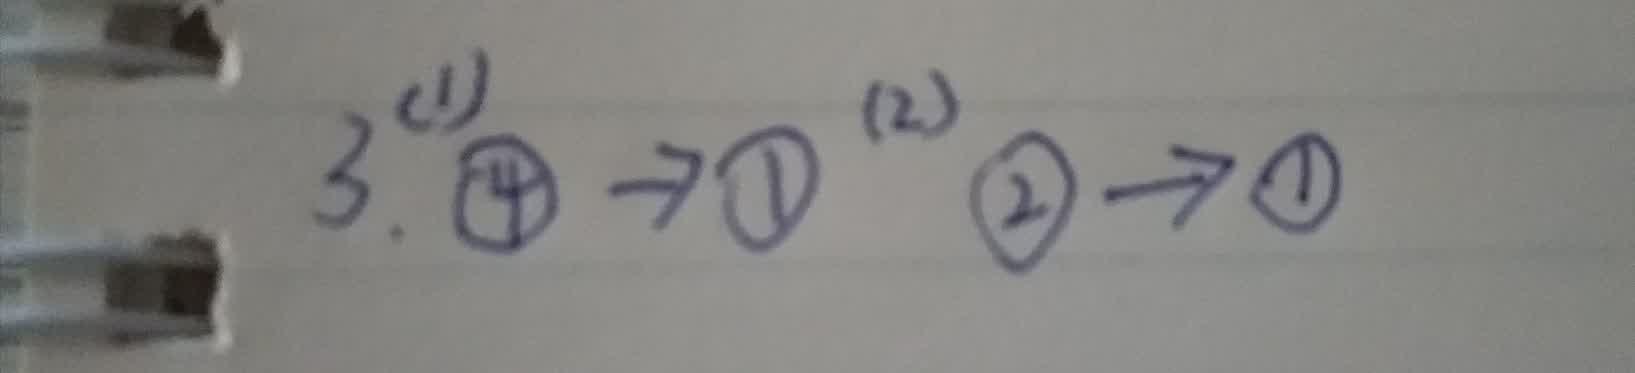 3. (1) ④ → ① (2) ② → ①